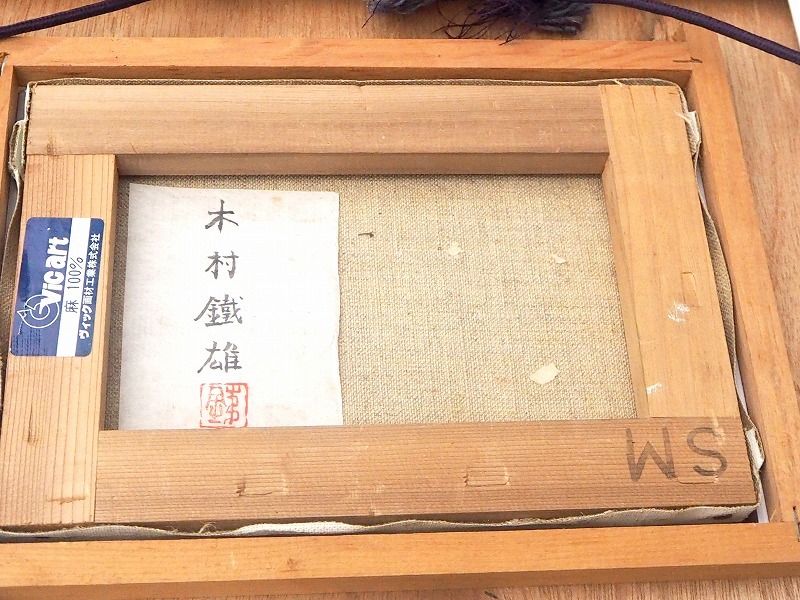 木村鐵雄
Vic art
麻 100%
ヴィック画材工業株式会社
SM